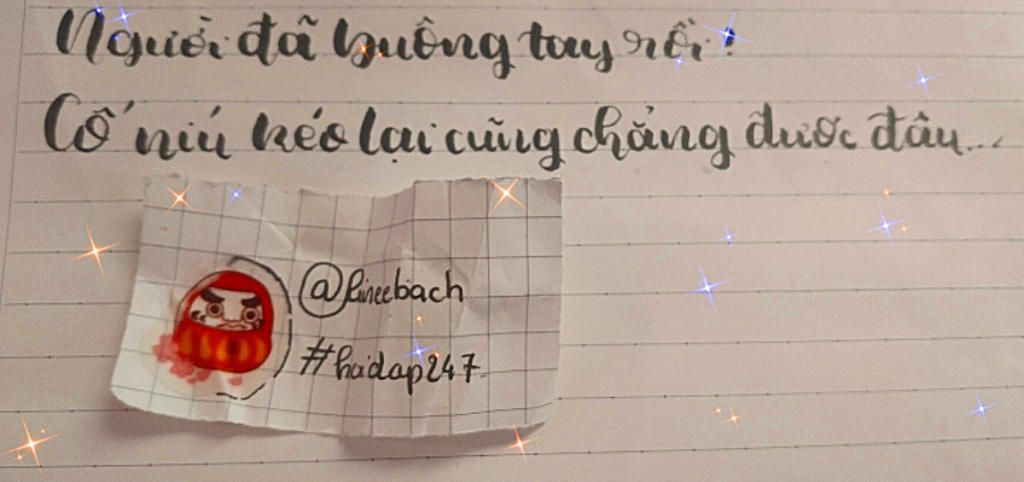 Người đã buông tay rồi!
Cố níu kéo lại cũng chẳng được đâu...
@lineebach
#haidap247